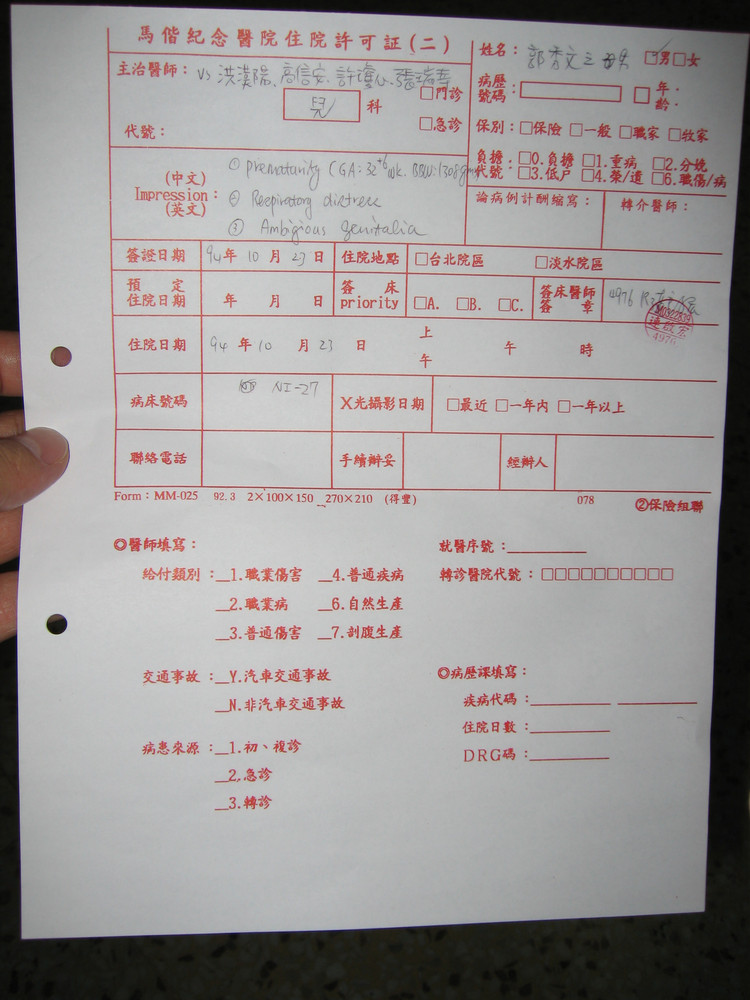 馬偕紀念醫院住院許可証(二)
姓名：郭秀文之 男 ☑男□女
主治醫師：VS 洪漢陽、高信安、許瓊心、張瑞幸
兒 科
□門診
□急診
代號：
病歷號碼：
年齡：
保別：□保險 □一般 □職家 □牧家
負擔代號：□0.負擔 □1.重病 □2.分娩
□3.低戶 □4.榮/遺 □6.職傷/病
(中文)
Impression：
(英文)
① prematurity (GA: 32+6 wk. BBW: 1308gm)
② Respiratory distress
③ Ambigious genitalia
論病例計酬縮寫：
轉介醫師：
簽證日期 94年 10 月 23 日 住院地點 □台北院區 □淡水院區
預定住院日期 年 月 日 簽床priority □A. □B. □C. 簽床醫師簽章 4976
4976
住院日期 94 年 10 月 23 日 上午 午 時
病床號碼 NI-27 X光攝影日期 □最近 □一年內 □一年以上
聯絡電話 手續辦妥 經辦人
Form：MM-025 92.3 2×100×150 270×210 (得豐) 078 ②保險組聯
◎醫師填寫：
就醫序號：
給付類別：__1.職業傷害 __4.普通疾病
轉診醫院代號：□□□□□□□□□□
__2.職業病 __6.自然生產
__3.普通傷害 __7.剖腹生產
交通事故：__Y.汽車交通事故
◎病歷課填寫：
__N.非汽車交通事故
疾病代碼：
住院日數：
病患來源：__1.初、複診
DRG碼：
__2.急診
__3.轉診